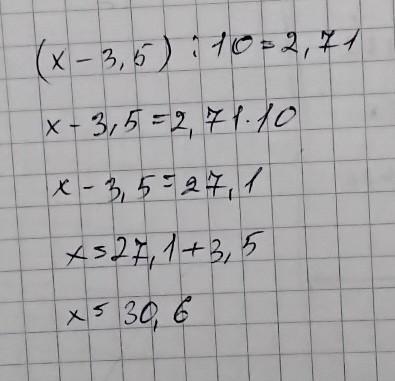 (x - 3,5) : 10 = 2,71
x - 3,5 = 2,71 · 10
x - 3,5 = 27,1
x = 27,1 + 3,5
x = 30,6